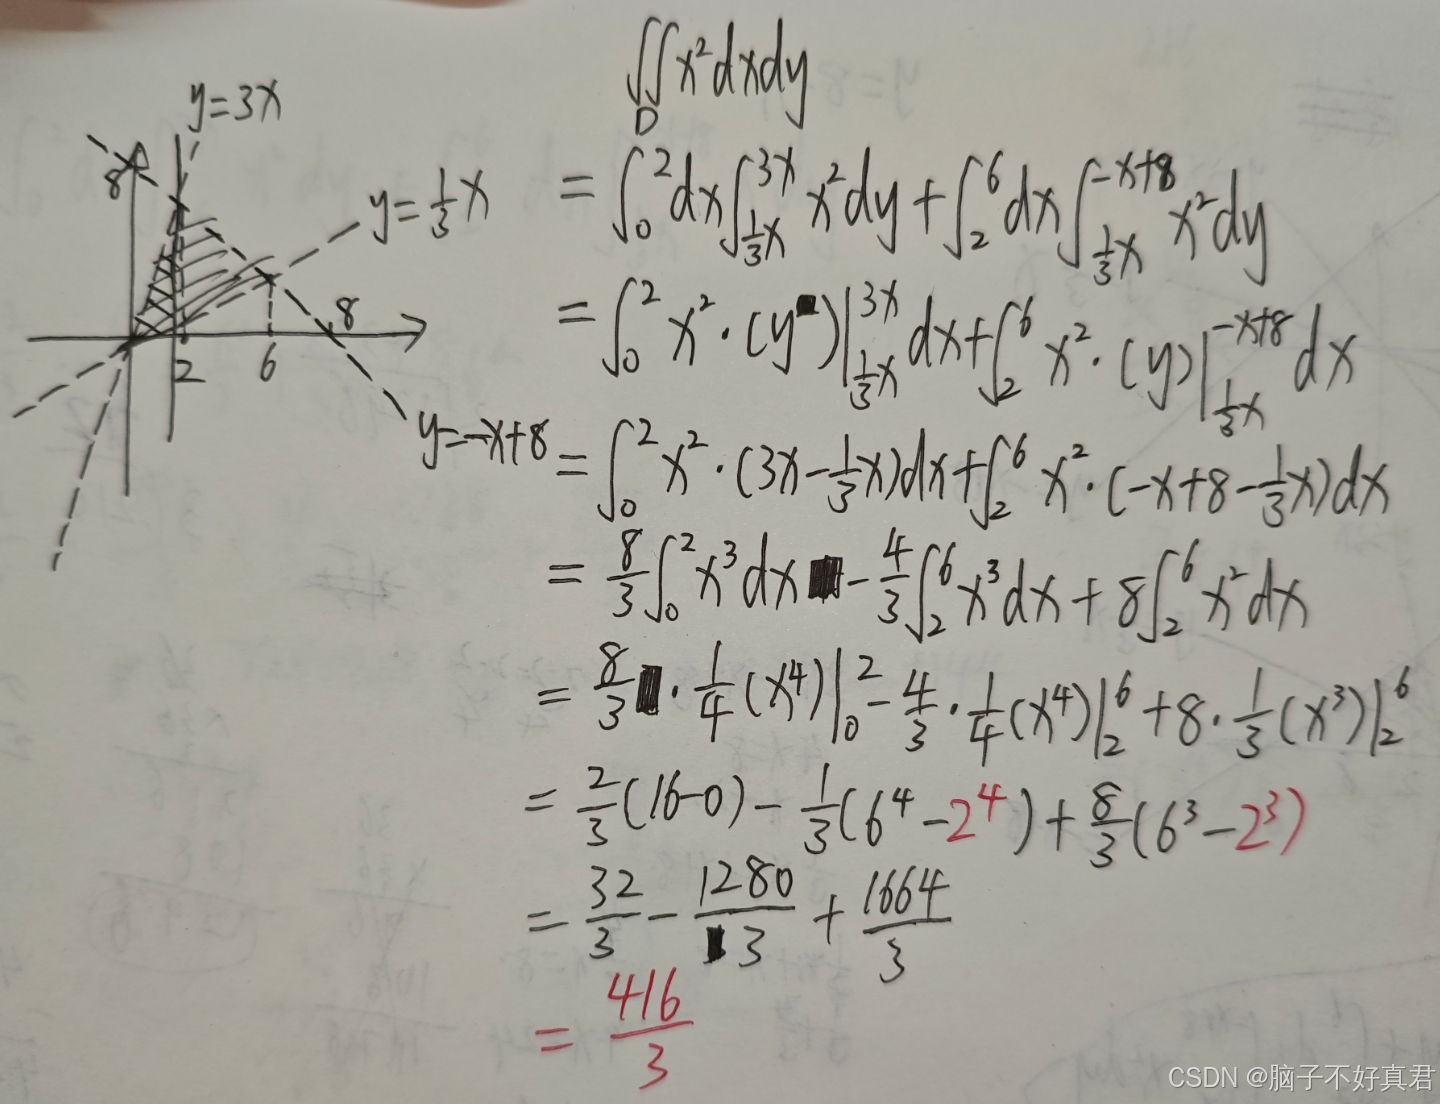 ∬_D x²dxdy
y=3x
8
y=⅓x
= ∫₀² dx ∫_{⅓x}^{3x} x²dy + ∫₂⁶ dx ∫_{⅓x}^{-x+8} x²dy
8
2 6
y=-x+8
= ∫₀² x²·(y)|_{⅓x}^{3x} dx + ∫₂⁶ x²·(y)|_{⅓x}^{-x+8} dx
= ∫₀² x²·(3x-⅓x)dx + ∫₂⁶ x²·(-x+8-⅓x)dx
= 8/3 ∫₀² x³dx - 4/3 ∫₂⁶ x³dx + 8∫₂⁶ x²dx
= 8/3 · 1/4 (x⁴)|₀² - 4/3 · 1/4 (x⁴)|₂⁶ + 8 · 1/3 (x³)|₂⁶
= 2/3 (16-0) - 1/3 (6⁴-2⁴) + 8/3 (6³-2³)
= 32/3 - 1280/3 + 1664/3
= 416/3
CSDN @脑子不好真君